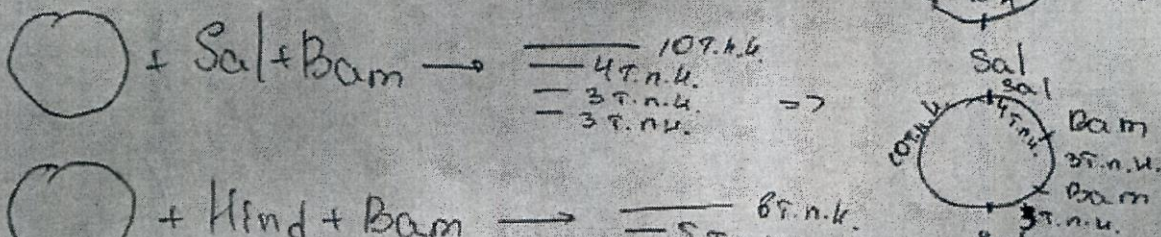 + Sal+Bam → 10 т.п.н.
4 т.п.н.
3 т.п.н.
3 т.п.н.
=>
Sal
Sal
10 т.п.н.
4 т.п.н.
Bam
3 т.п.н.
Bam
3 т.п.н.
+ Hind + Bam → 6 т.п.н.